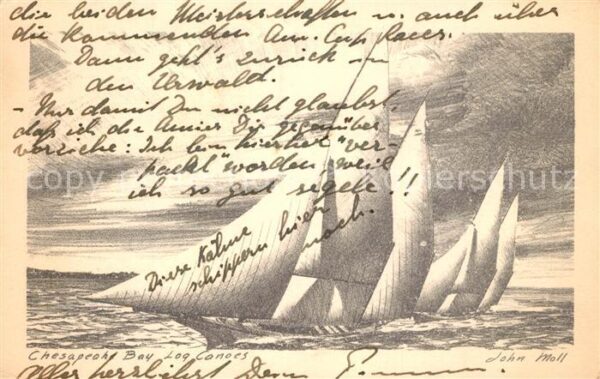 die beiden Meisterschaften u. auch über
die kommenden Am. Cup Races.
Dann geht's zurück in
den Urwald.
- Nur damit Du nicht glaubst,
dass ich die Amis Dir gegenüber
vorziehe: Ich bin hierher "ver-
packt" worden, weil
ich so gut segele!!
Diese Kähne
schippern hier
noch.
Chesapeake Bay Log Canoes
John Moll
Allerherzlichst Dein